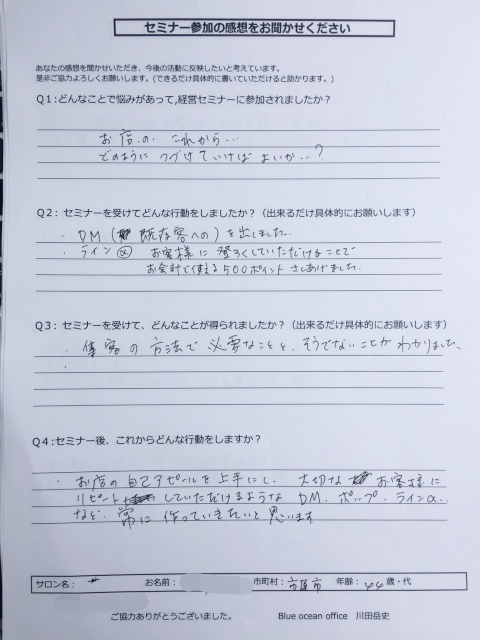 セミナー参加の感想をお聞かせください
あなたの感想を聞かせいただき、今後の活動に反映したいと考えています。
是非ご協力よろしくお願いします。(できるだけ具体的に書いていただけると助かります。)
Q1:どんなことで悩みがあって,経営セミナーに参加されましたか?
お店の これから…
どのように つづけていけば よいか…?
Q2: セミナーを受けてどんな行動をしましたか?(出来るだけ具体的にお願いします)
・DM (既存客への) を出しました。
・ライン@ お客様に 登ろくしていただけることで
お会計で使える500ポイント さしあげました。
Q3: セミナーを受けて、どんなことが得られましたか?(出来るだけ具体的にお願いします)
・集客の方法で 必要なことと、そうでないことが わかりました。
・
Q4:セミナー後、これからどんな行動をしますか?
・お店の自己アピールを上手にし、大切な お客様に
リピート していただけるような DM、ポップ、ライン@..
など 常に 作っていきたいと思います
サロン名: お名前: 市町村: 市原市 年齢: 44 歳・代
ご協力ありがとうございました。 Blue ocean office 川田岳史